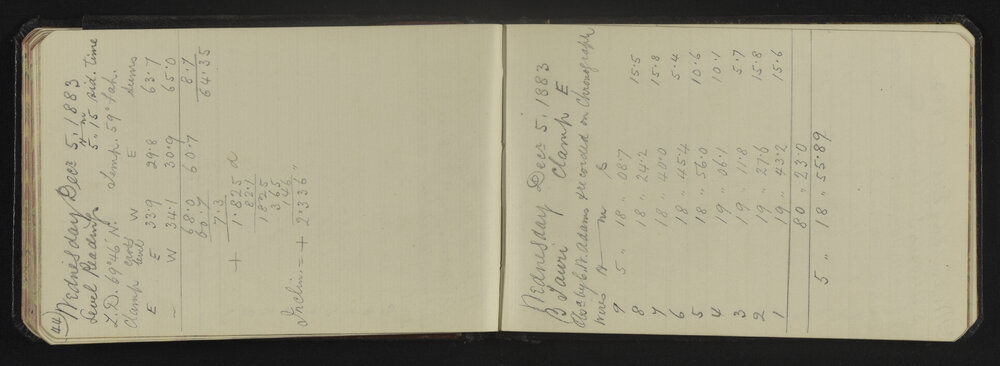 (44) Wednesday Decr 5, 1883
Level Reading 5h „ 15m sid. time
Z.D. 69°46' N. Temp. 59° Fah.
Clamp W E sums
E E 33.9 29.8 63.7
– W 34.1 30.9 65.0
68.0 60.7 8.7
60.7 64.35
7.3
+ 1.825 d
82.1
1825
365
146
Inclin = + 2.336"
Wednesday Decr 5, 1883
β Tauri Clamp E
Obsd by C.W. Adams & recorded on Chronograph
Wires h m s
9 5 „ 18 „ 08.7
8 18 „ 24.2 15.5
7 18 „ 40.0 15.8
6 18 „ 45.4 5.4
5 18 „ 56.0 10.6
4 19 „ 06.1 10.1
3 19 „ 11.8 5.7
2 19 „ 27.6 15.8
1 19 „ 43.2 15.6
80 „ 23.0
5 „ 18 „ 55.89